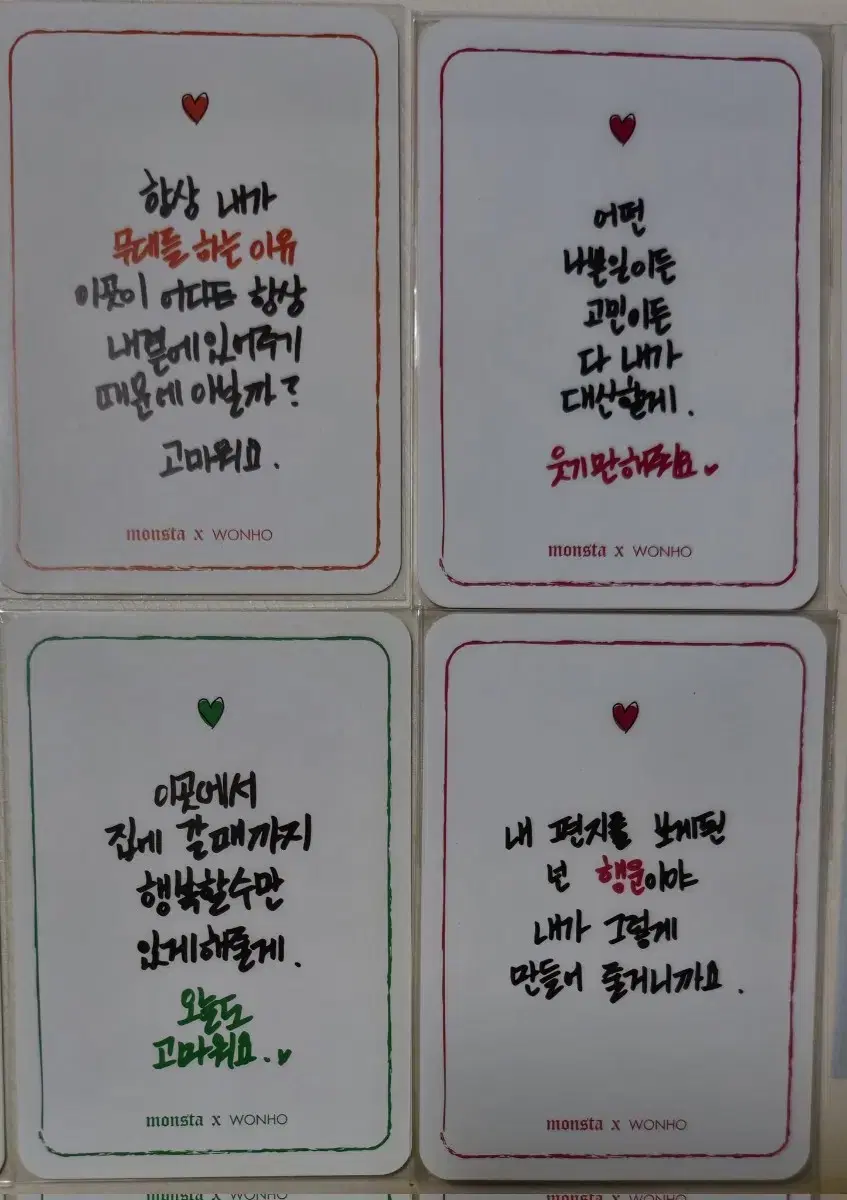 항상 내가
무대를 하는 이유
이곳이 어디든 항상
내옆에있어주기
때문에 아닐까?
고마워요.
monsta x WONHO
어떤
나쁜일이든
고민이든
다 내가
대신할게.
웃기만해줘요
monsta x WONHO
이곳에서
집에 갈때까지
행복할수만
있게해줄게.
오늘도
고마워요.
monsta x WONHO
내 편지를 보게된
넌 행운이야
내가 그렇게
만들어 줄거니까요.
monsta x WONHO
monsta x WONHO
monsta x WONHO